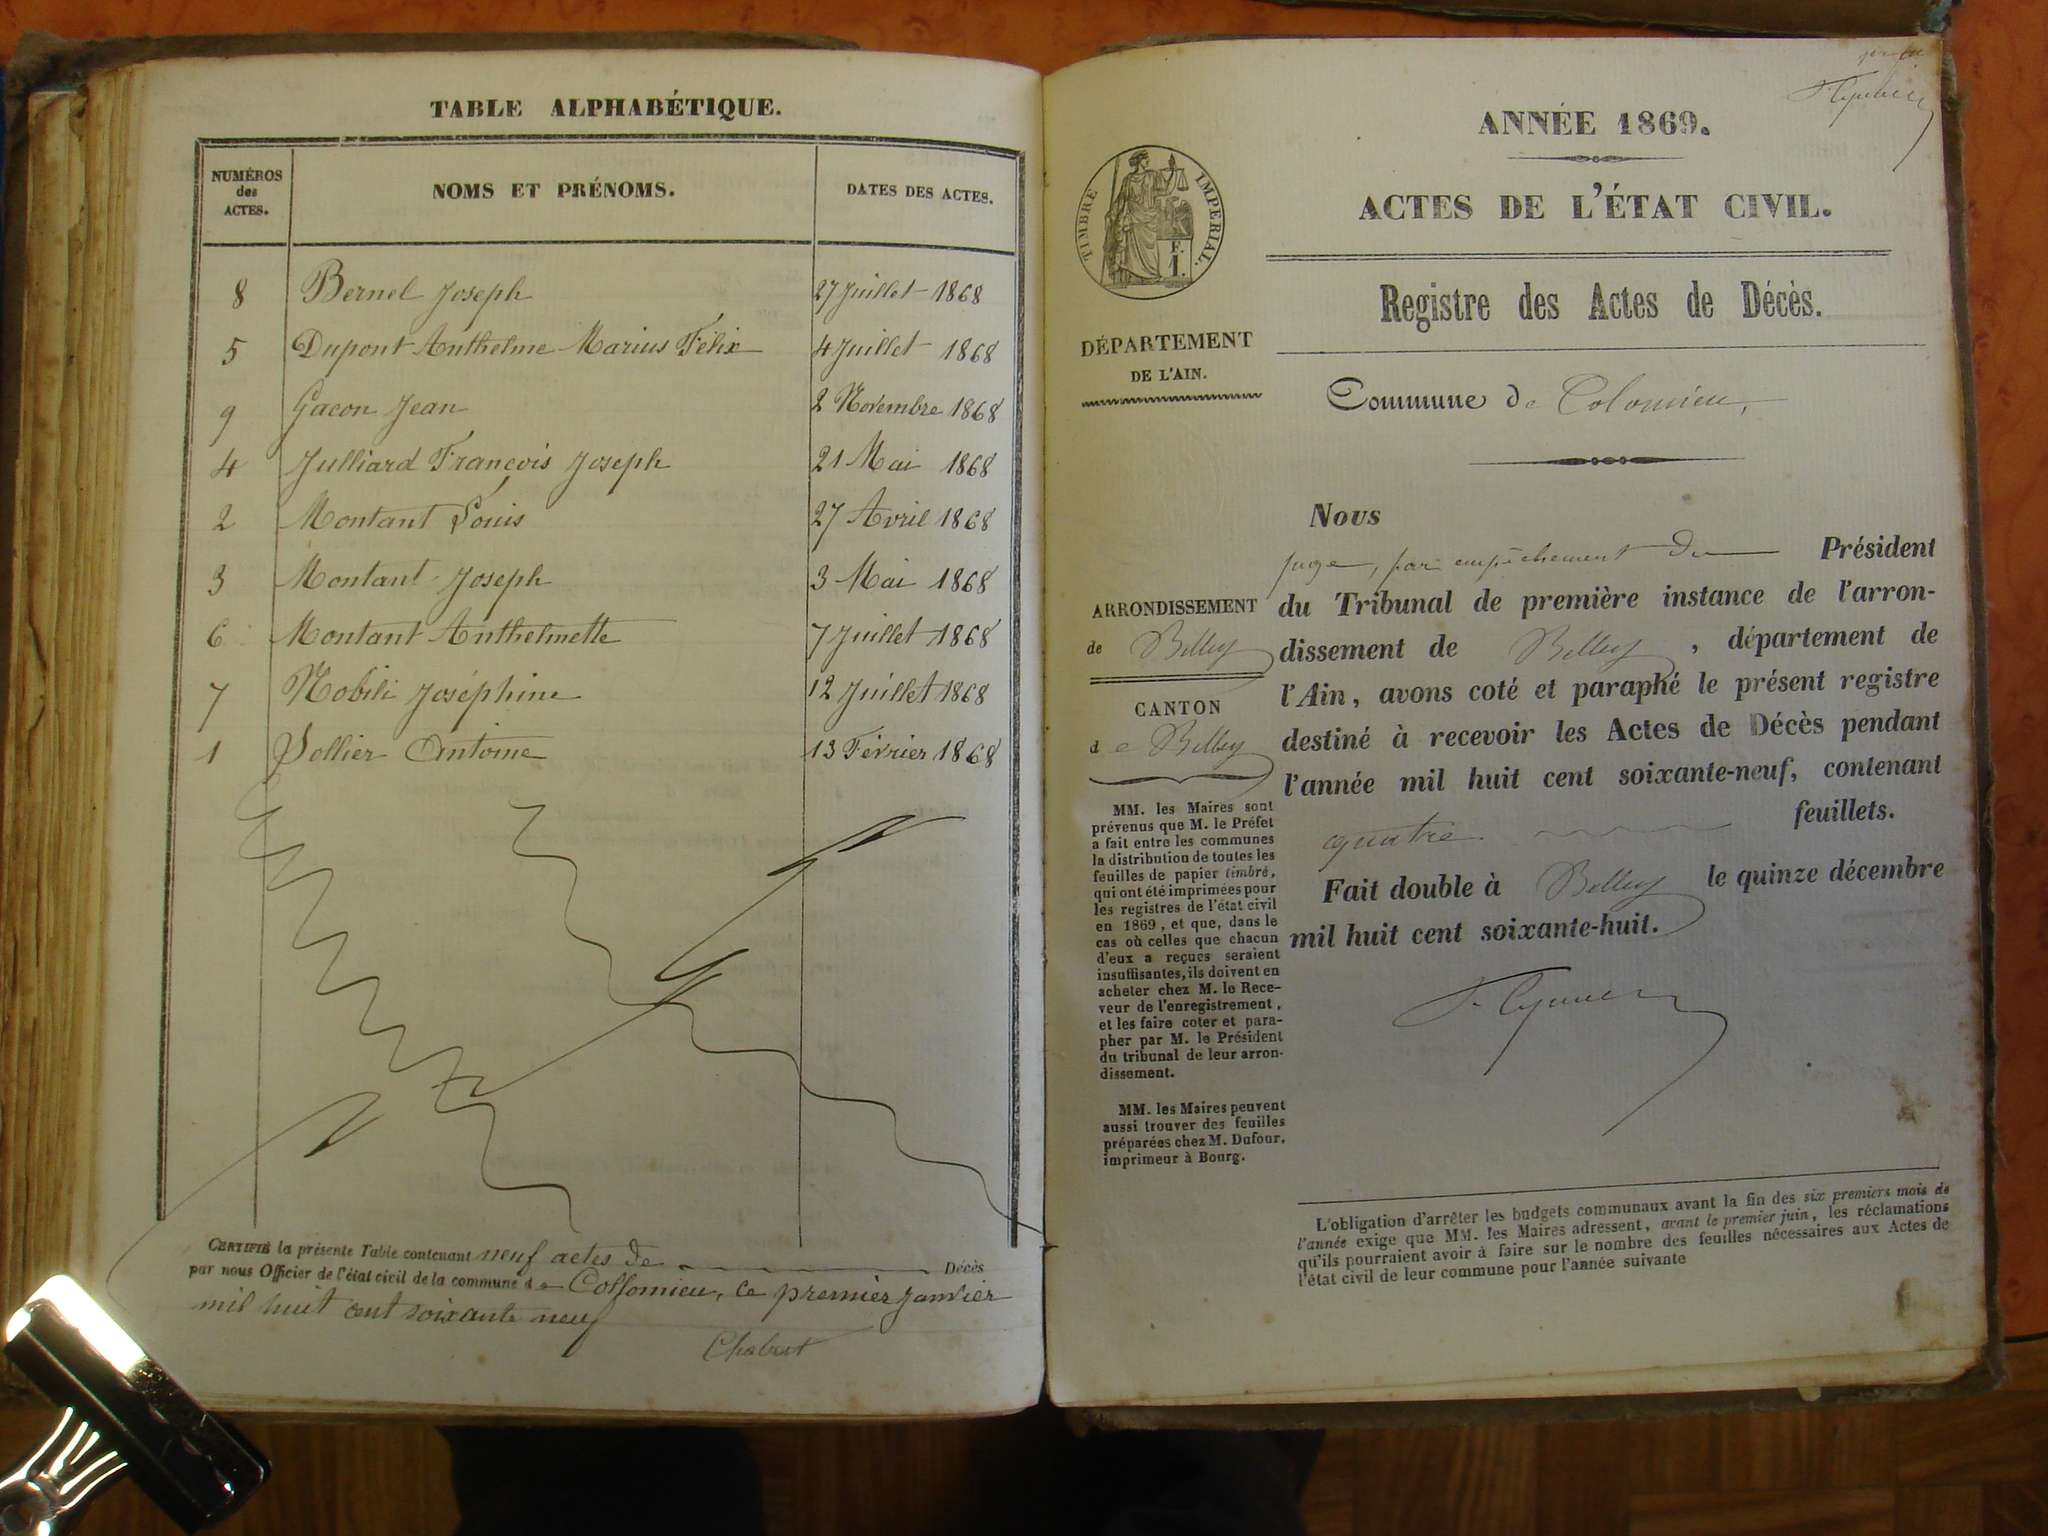 TABLE ALPHABÉTIQUE.
NUMÉROS des ACTES. NOMS ET PRÉNOMS. DATES DES ACTES.
8 Bernel Joseph 27 Juillet 1868
5 Dupont Anthelme Marius Félix 4 Juillet 1868
9 Gacon Jean 2 Novembre 1868
4 Julliard François Joseph 21 Mai 1868
2 Montant Louis 27 Avril 1868
3 Montant Joseph 3 Mai 1868
6 Montant Anthelmette 7 Juillet 1868
7 Nobili Joséphine 12 Juillet 1868
1 Sollier Antoine 13 Février 1868
CERTIFIÉ la présente Table contenant neuf actes de Décès
par nous Officier de l'état civil de la commune de Collomieu, ce premier janvier
mil huit cent soixante neuf
Chabert
ANNÉE 1869.
ACTES DE L'ÉTAT CIVIL.
TIMBRE IMPERIAL.
F.
1.
Registre des Actes de Décès.
DÉPARTEMENT
DE L'AIN.
Commune de Colomieu,
Nous
juge, par empêchement du Président
du Tribunal de première instance de l'arron-
dissement de Belley, département de
l'Ain, avons coté et paraphé le présent registre
destiné à recevoir les Actes de Décès pendant
l'année mil huit cent soixante-neuf, contenant
quatre feuillets.
Fait double à Belley le quinze décembre
mil huit cent soixante-huit.
ARRONDISSEMENT
de Belley
CANTON
de Belley
MM. les Maires sont
prévenus que M. le Préfet
a fait entre les communes
la distribution de toutes les
feuilles de papier timbré,
qui ont été imprimées pour
les registres de l'état civil
en 1869, et que, dans le
cas où celles que chacun
d'eux a reçues seraient
insuffisantes, ils doivent en
acheter chez M. le Rece-
veur de l'enregistrement,
et les faire coter et para-
pher par M. le Président
du tribunal de leur arron-
dissement.
MM. les Maires peuvent
aussi trouver des feuilles
préparées chez M. Dufour,
imprimeur à Bourg.
L'obligation d'arrêter les budgets communaux avant la fin des six premiers mois de
l'année exige que MM. les Maires adressent, avant le premier juin, les réclamations
qu'ils pourraient avoir à faire sur le nombre des feuilles nécessaires aux Actes de
l'état civil de leur commune pour l'année suivante